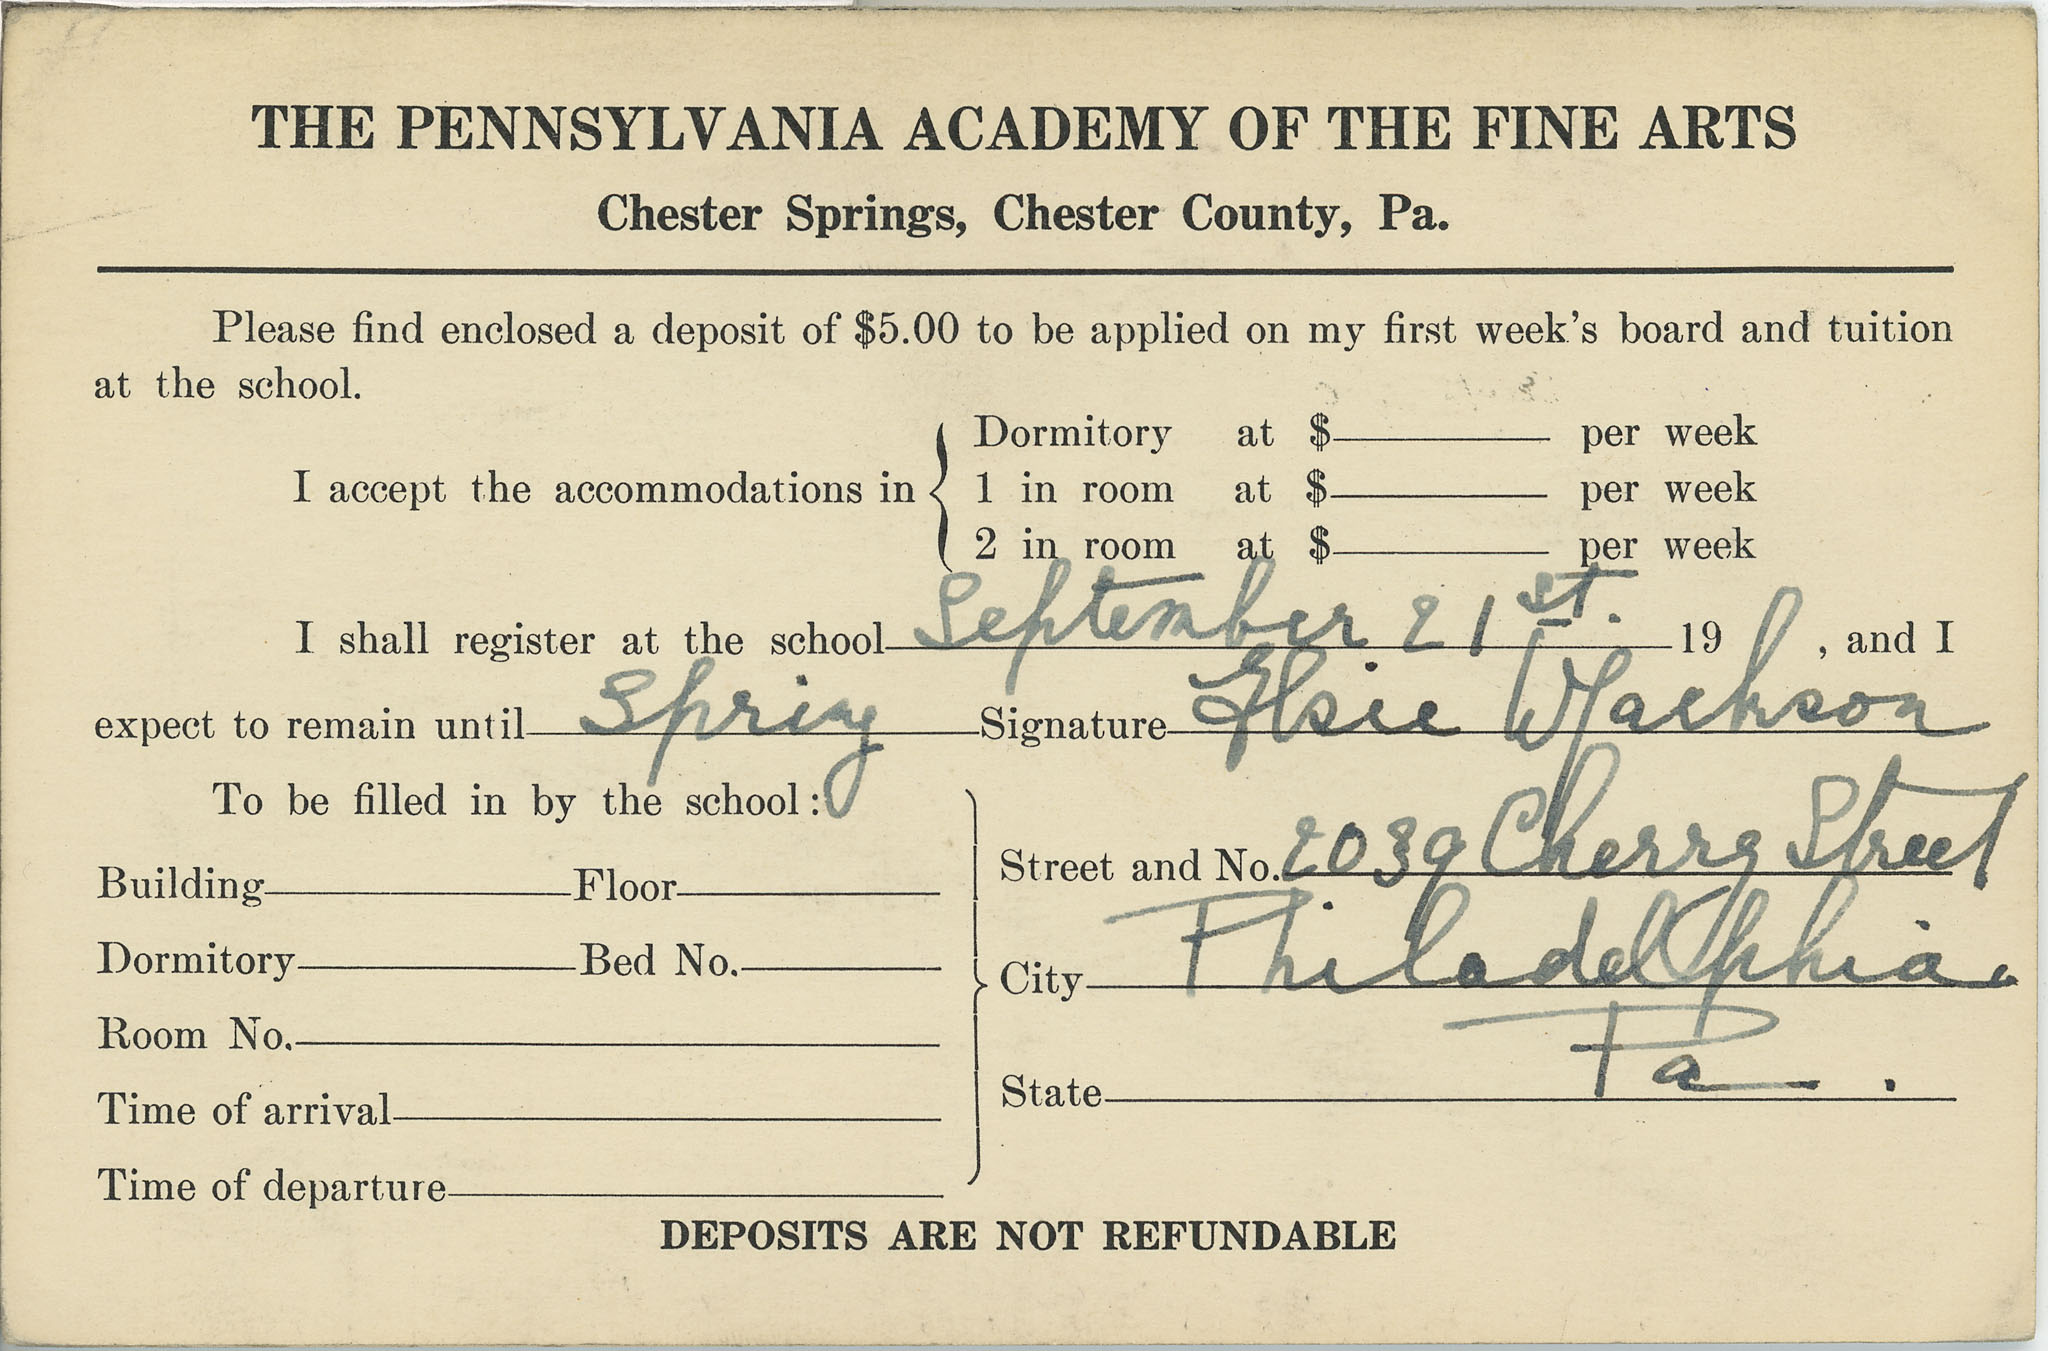 THE PENNSYLVANIA ACADEMY OF THE FINE ARTS
Chester Springs, Chester County, Pa.
Please find enclosed a deposit of $5.00 to be applied on my first week's board and tuition
at the school.
Dormitory at $ per week
I accept the accommodations in 1 in room at $ per week
2 in room at $ per week
I shall register at the school September 21st. 19 , and I
expect to remain until Spring Signature Elsie W Jackson
To be filled in by the school:
Street and No. 2039 Cherry Street
Building Floor
Dormitory Bed No.
City Philadelphia.
Room No.
State Pa.
Time of arrival
Time of departure
DEPOSITS ARE NOT REFUNDABLE